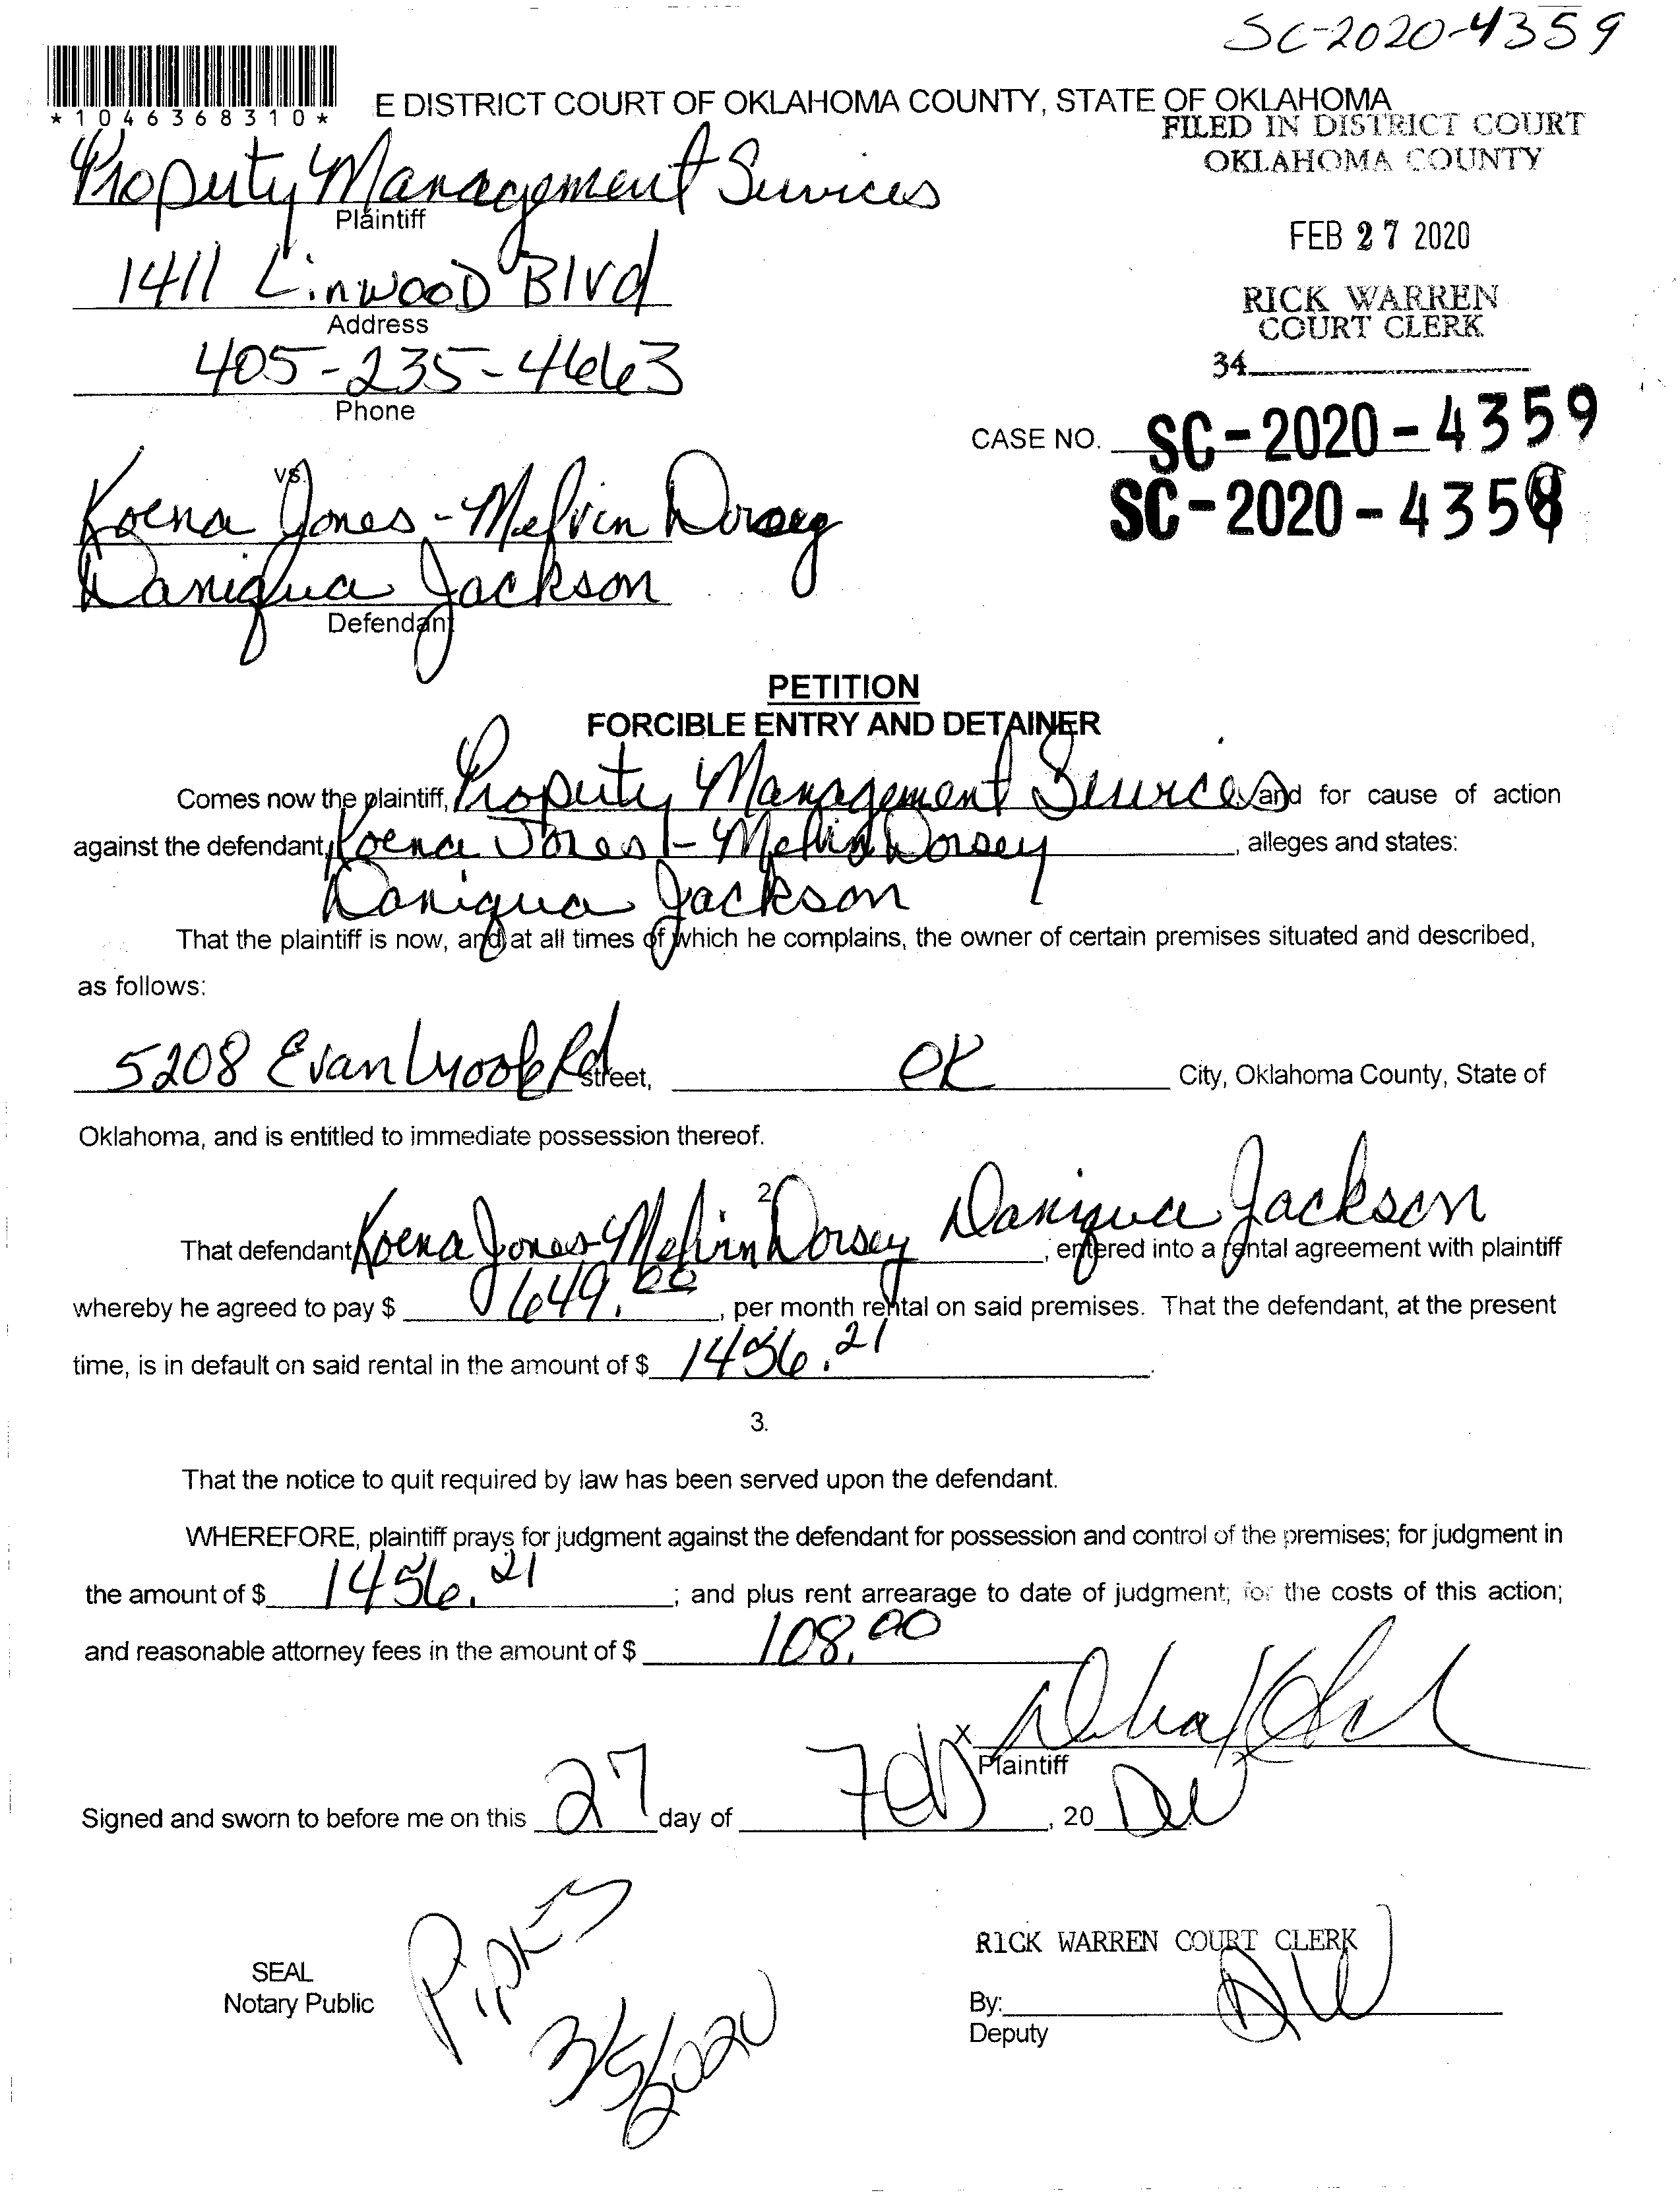 SC-2020-4359
*1046368310*
E DISTRICT COURT OF OKLAHOMA COUNTY, STATE OF OKLAHOMA
FILED IN DISTRICT COURT
OKLAHOMA COUNTY
Property Management Services
Plaintiff
FEB 27 2020
1411 Linwood Blvd
Address
RICK WARREN
COURT CLERK
405-235-4663
Phone
34
CASE NO. SC-2020-4359
SC-2020-4359
vs.
Koena Jones - Melvin Dorsey
Daniqua Jackson
Defendant
PETITION
FORCIBLE ENTRY AND DETAINER
Comes now the plaintiff, Property Management Services and for cause of action
against the defendant, Koena Jones - Melvin Dorsey, alleges and states:
Daniqua Jackson
That the plaintiff is now, and at all times of which he complains, the owner of certain premises situated and described,
as follows:
5208 Evanbrook Rd street, OK City, Oklahoma County, State of
Oklahoma, and is entitled to immediate possession thereof.
2
That defendant Koena Jones - Melvin Dorsey Daniqua Jackson, entered into a rental agreement with plaintiff
whereby he agreed to pay $ 649.00, per month rental on said premises. That the defendant, at the present
time, is in default on said rental in the amount of $ 1456.21.
3.
That the notice to quit required by law has been served upon the defendant.
WHEREFORE, plaintiff prays for judgment against the defendant for possession and control of the premises; for judgment in
the amount of $ 1456.21; and plus rent arrearage to date of judgment; for the costs of this action;
and reasonable attorney fees in the amount of $ 108.00
X
Plaintiff
Signed and sworn to before me on this 27 day of Feb, 20
SEAL
Notary Public
3/5/2020
RICK WARREN COURT CLERK
By:
Deputy